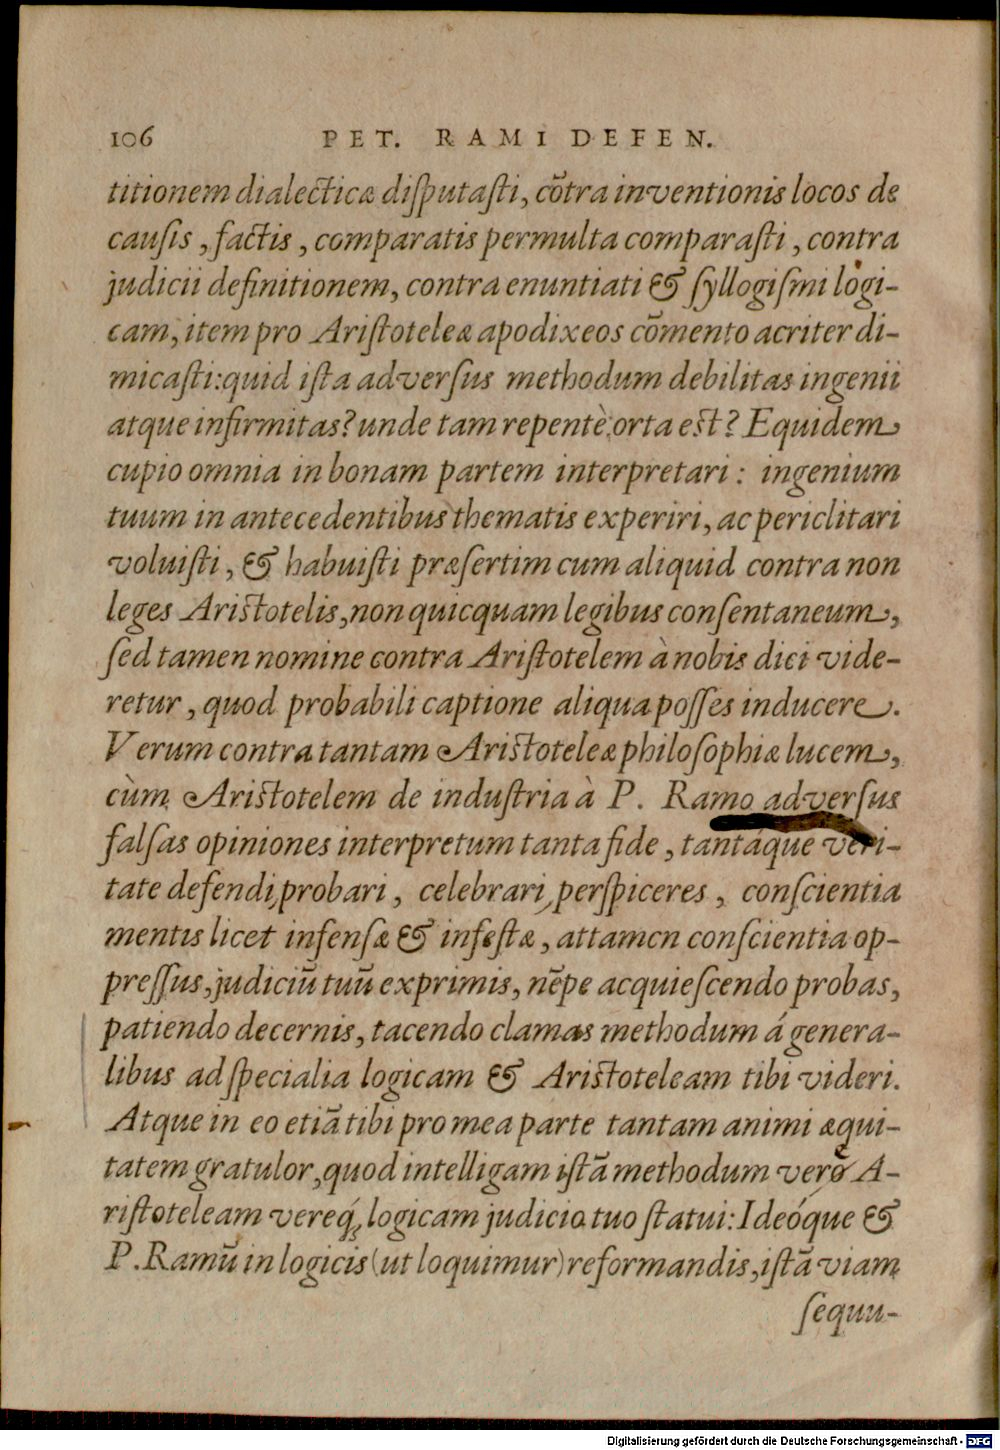 106 PET. RAMI DEFEN.
titionem dialecticæ diſputaſti, cōtra inventionis locos de
cauſis, factis, comparatis permulta comparaſti, contra
judicii definitionem, contra enuntiati & ſyllogiſmi logi-
cam, item pro Ariſtoteleæ apodixeos cōmento acriter di-
micaſti: quid iſta adverſus methodum debilitas ingenii
atque infirmitas? unde tam repentè orta eſt? Equidem
cupio omnia in bonam partem interpretari: ingenium
tuum in antecedentibus thematis experiri, ac periclitari
voluiſti, & habuiſti præſertim cum aliquid contra non
leges Ariſtotelis, non quicquam legibus conſentaneum,
ſed tamen nomine contra Ariſtotelem à nobis dici vide-
retur, quod probabili captione aliqua poſſes inducere.
Verum contra tantam Ariſtoteleæ philoſophiæ lucem,
cùm Ariſtotelem de induſtria à P. Ramo adverſus
falſas opiniones interpretum tanta fide, tantáque veri-
tate defendi, probari, celebrari, perſpiceres, conſcientia
mentis licet infenſæ & infeſtæ, attamen conſcientia op-
preſſus, judiciū tuū exprimis, nēpe acquieſcendo probas,
patiendo decernis, tacendo clamas methodum á genera-
libus ad ſpecialia logicam & Ariſtoteleam tibi videri.
Atque in eo etiā tibi pro mea parte tantam animi æqui-
tatem gratulor, quod intelligam iſtā methodum verè A-
riſtoteleam vereq́; logicam judicio tuo ſtatui: Ideóque &
P. Ramū in logicis (ut loquimur) reformandis, iſtā viam
ſequu-
Digitalisierung gefördert durch die Deutsche Forschungsgemeinschaft - DFG